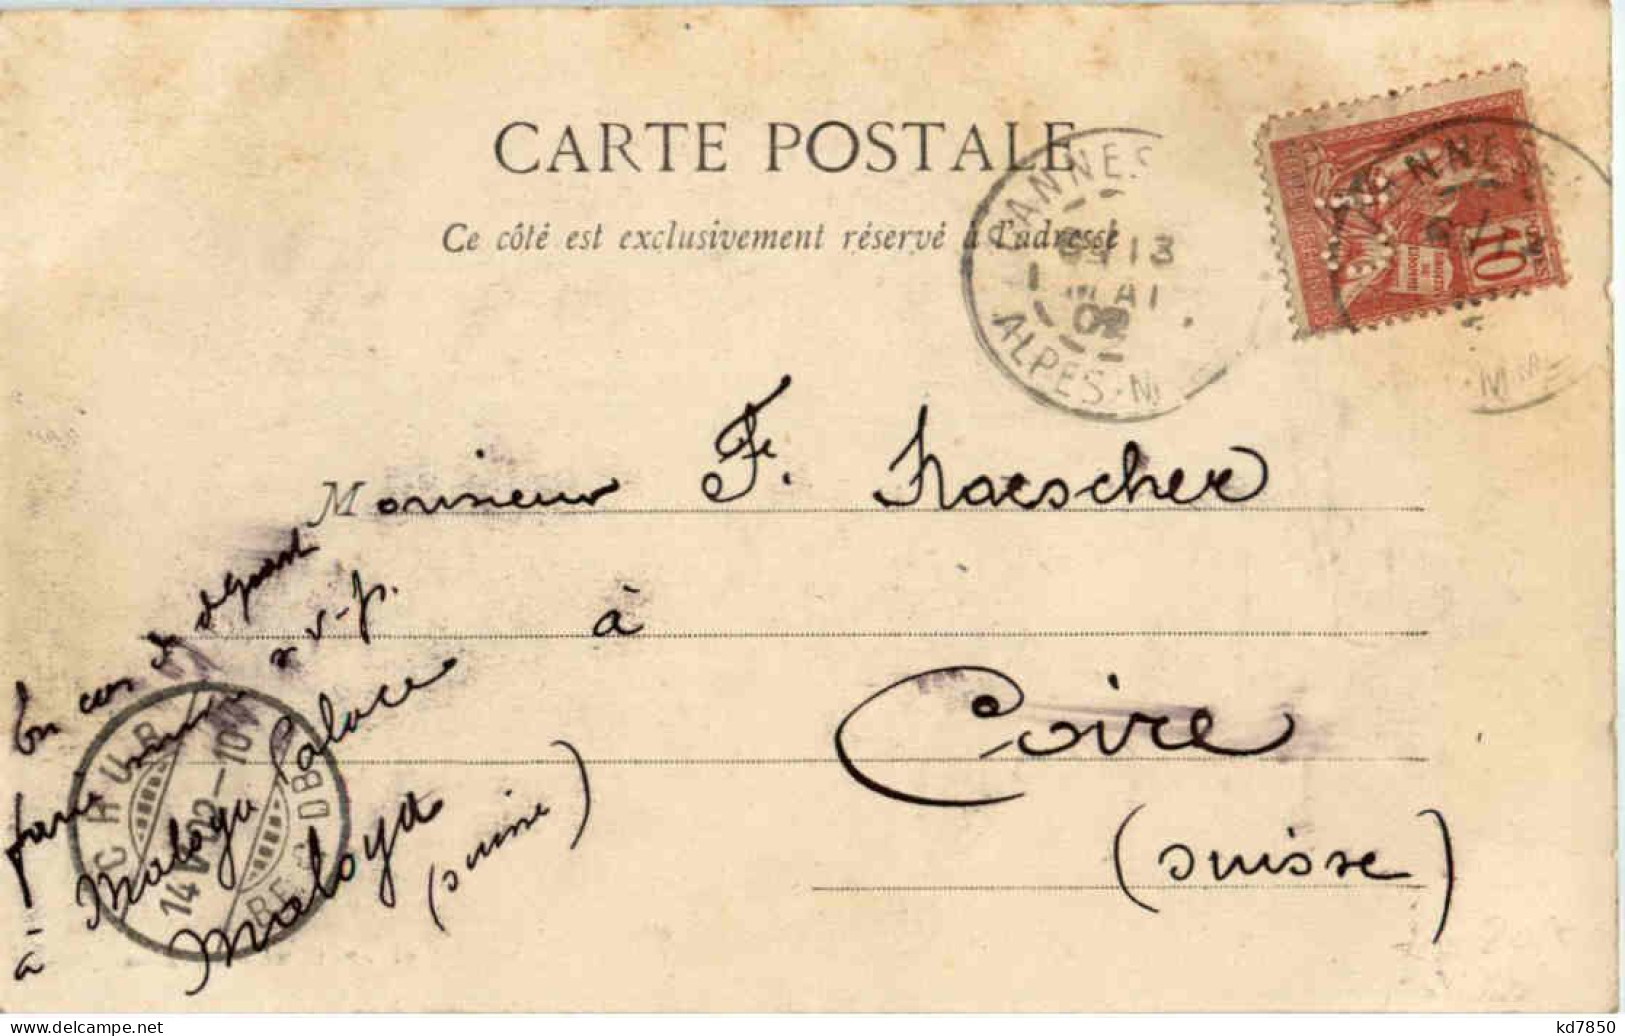 CARTE POSTALE
Ce côté est exclusivement réservé à l'adresse
CANNES
13
MAI
02
ALPES-M
CANNES
10
Monsieur F.
à
Coire
(suisse)
En cas de départ
faire suivre s. v. p.
à Maloya Palace
Maloya
(suisse)
CHUR
14 V 02-10
kd7850